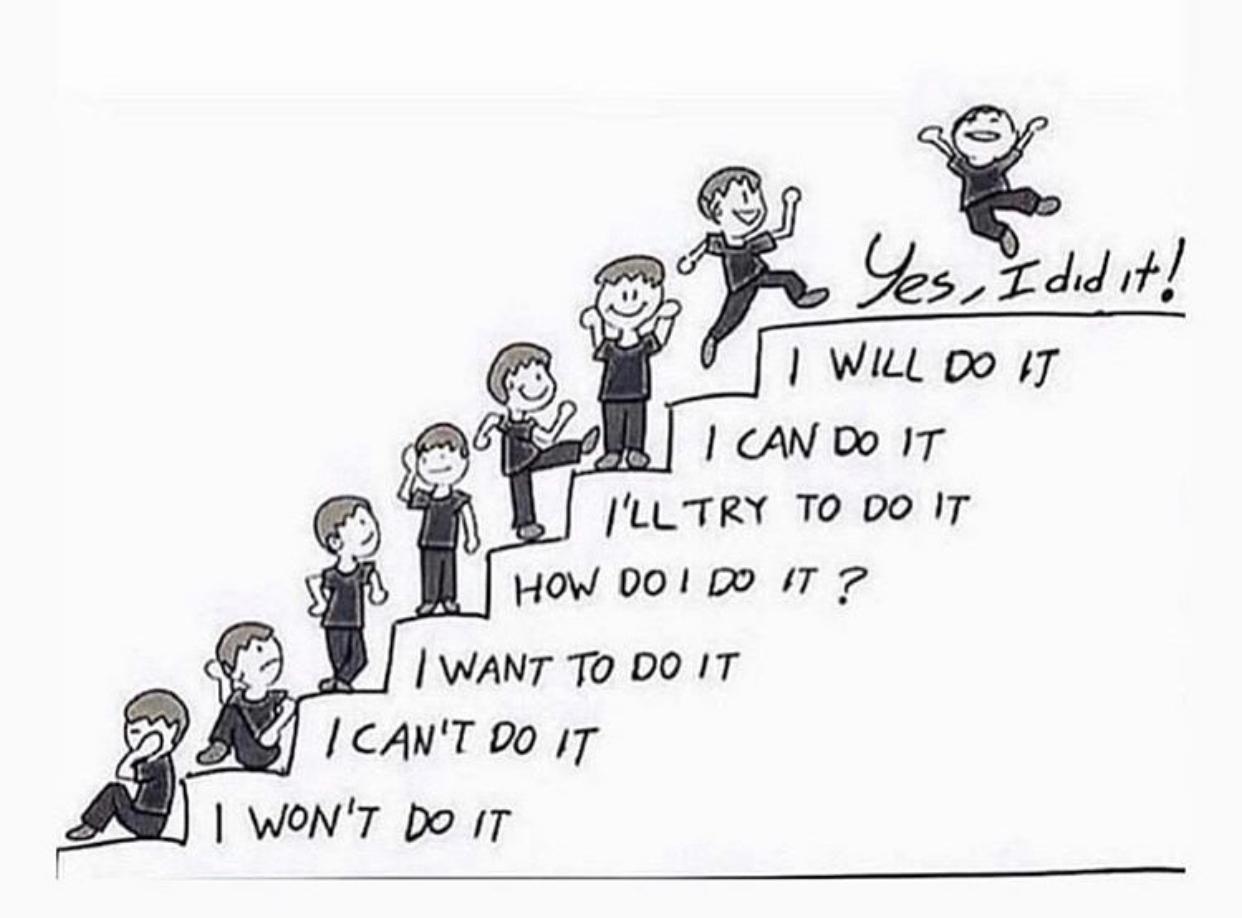 Yes, I did it!
I WILL DO IT
I CAN DO IT
I'LL TRY TO DO IT
HOW DO I DO IT ?
I WANT TO DO IT
I CAN'T DO IT
I WON'T DO IT